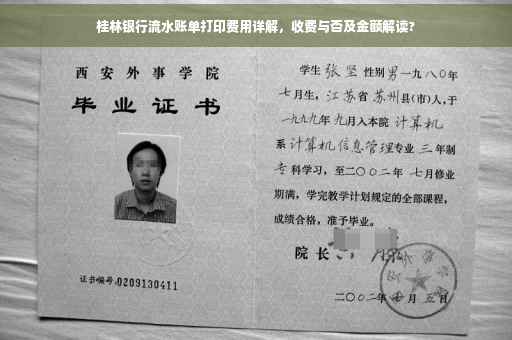 桂林银行流水账单打印费用详解，收费与否及金额解读?
西安外事学院
毕业证书
证书编号:0209130411
学生 张坚 性别 男 一九八〇年
七月生，江苏省 苏州县(市)人,于
一九九九年 九月入本院 计算机
系 计算机信息管理专业 三 年制
专科学习，至二〇〇二年 七月修业
期满，学完教学计划规定的全部课程，
成绩合格，准予毕业。
院长
二〇〇二年 月 五日